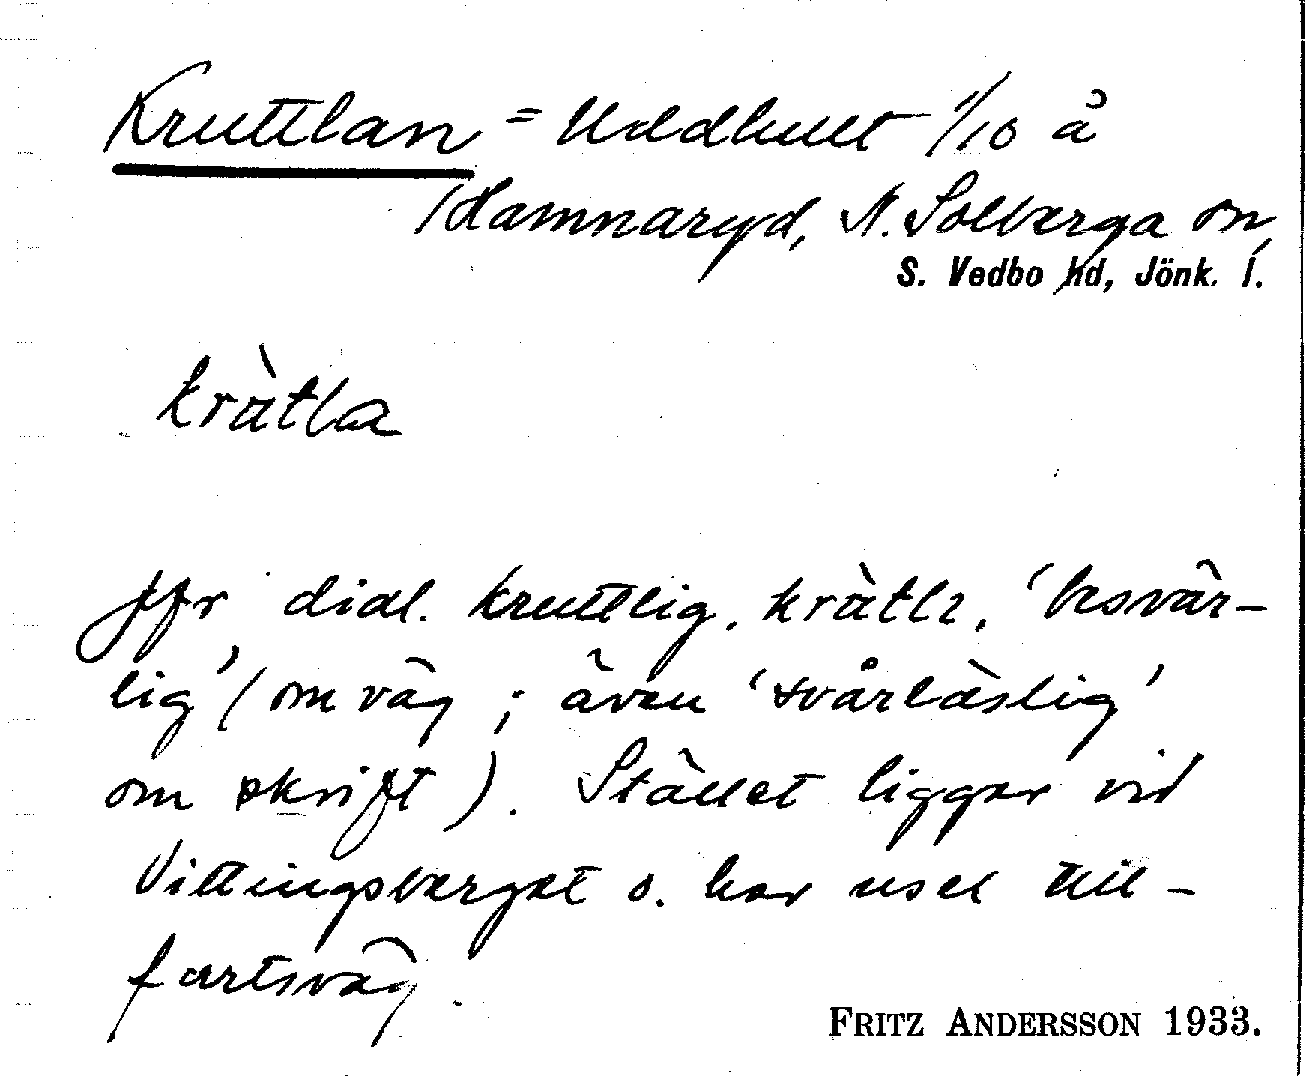 Kruttlan = Uddhult 1/16 å
/Hamnaryd, N. Solberga sn,
S. Vedbo hd, Jönk. l.
kràtla
Jfr dial. kruttlig, kràtlı, 'besvär-
lig' (om väg; även 'svårläslig'
om skrift). Stället ligger vid
Vittingsberget o. har usel till-
fartsväg.
FRITZ ANDERSSON 1933.